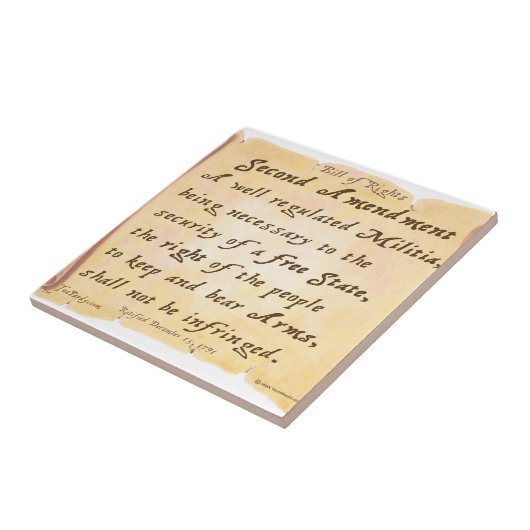 Bill of Rights
Second Amendment
A well regulated Militia,
being necessary to the
security of a free State,
the right of the people
to keep and bear Arms,
shall not be infringed.
Ratified December 15, 1791